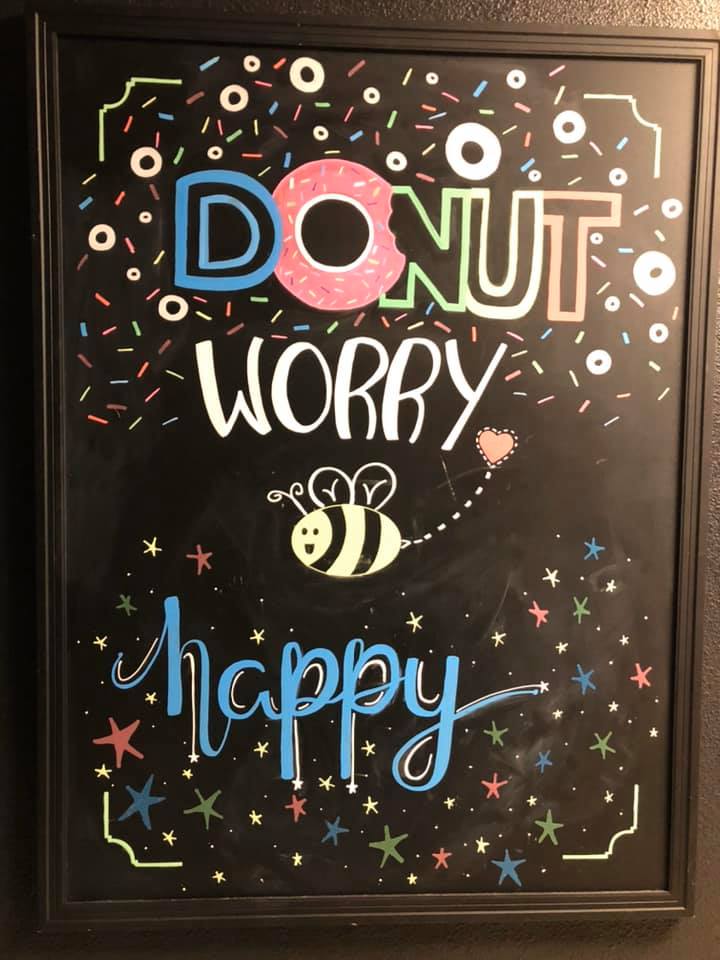 DONUT
WORRY
happy